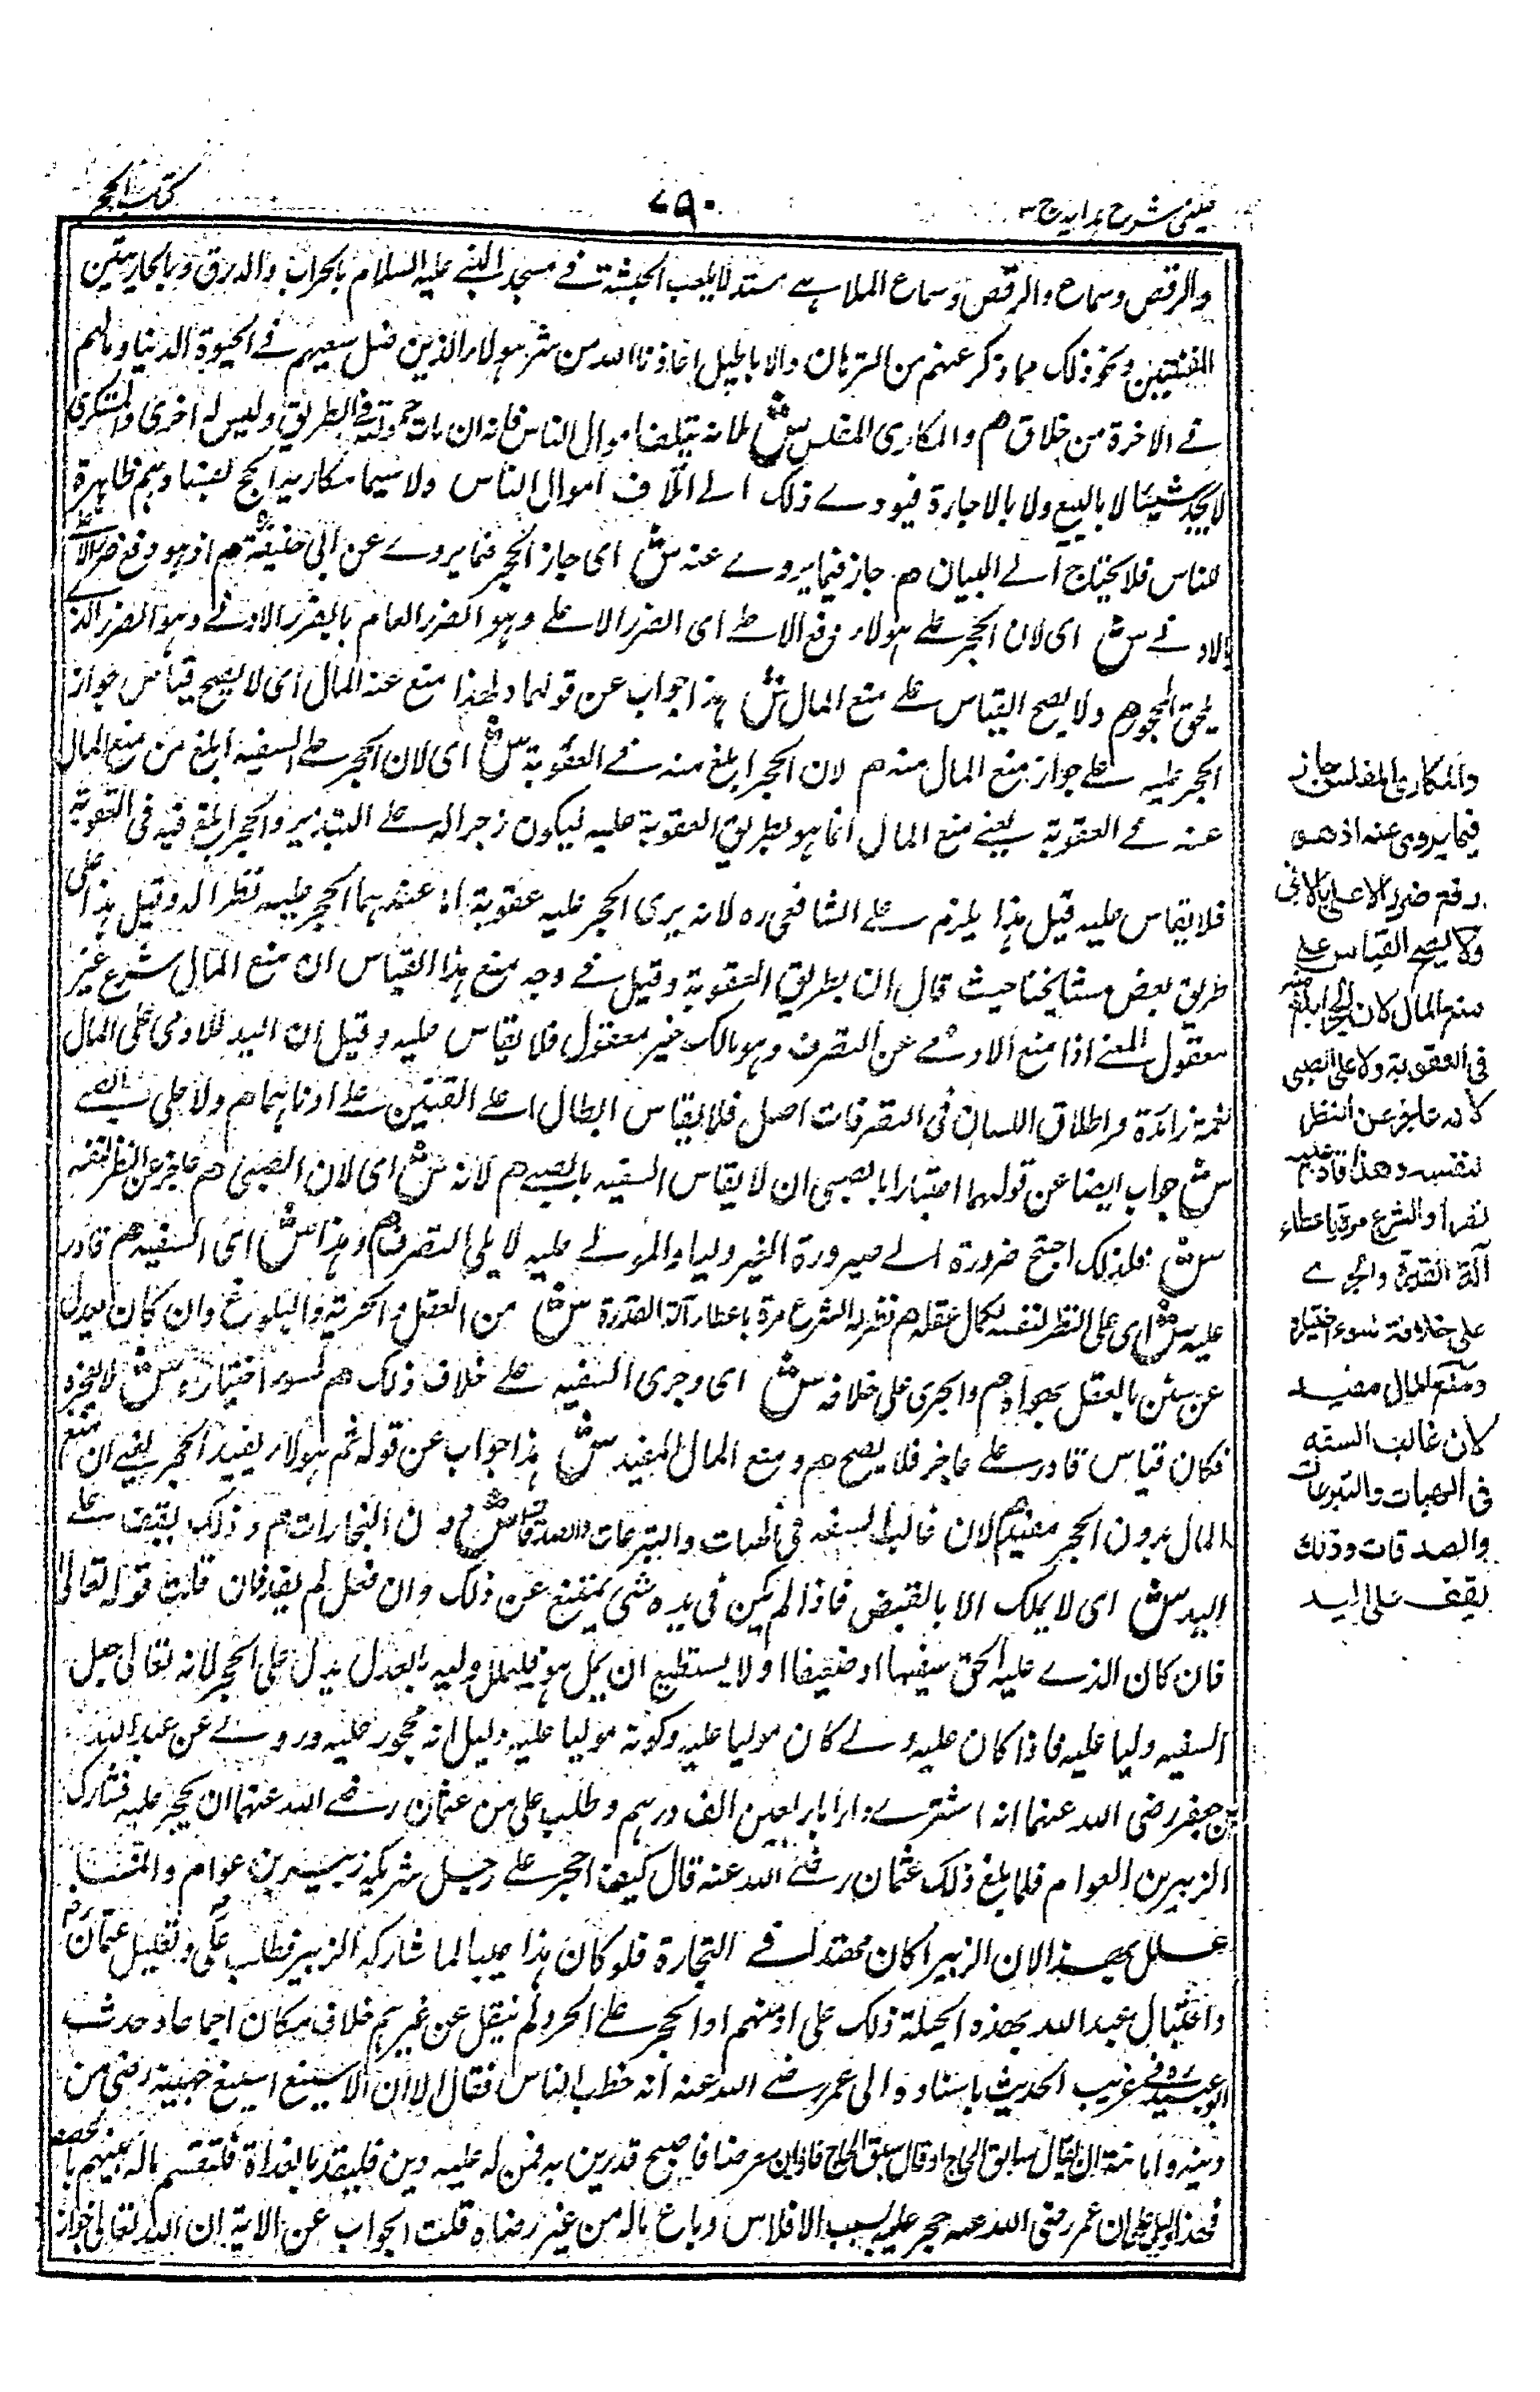 عینی شرح ہدایہ ج ۳
۷۹۰
کتاب الحجر
والرقص وسماع والرقص وسماع الملاہے مستدلا بلعب الحبشة فے مسجد النبے علیہ السلام بالحراب والدرق وبالجاریتین
المغنیتین ونحو ذلک مما ذکر عنہم من الترہات والاباطیل اعاذنا اللہ من شر ہولاء الذین ضل سعیہم فے الحیوة الدنیا ومالہم
فے الاخرة من خلاق ھم والمکاری المفلس ش لانہ یتلف اموال الناس فانہ ان مات حمولتہ فی الطریق ولیس لہ اخری والمستکری
لا یجد شیئا لا بالبیع ولا بالاجارة فیودے ذلک الے اتلاف اموال الناس ولا سیما مکاریہ الحج وہم ظاہرة
للناس فلا یحتاج الے البیان ھم جاز فیما یروے عنہ ش ای جاز الحجر فیما یروے عن ابی حنیفة ھم اذ ہو دفع ضرر الاعلے
بالادنے ش ای لان الحجر علے ہولاء دفع الاعلے ای الضرر الاعلے وہو الضرر العام بالضرر الادنے وہو الضرر الذے
یلحق المحجور ھم ولا یصح القیاس علے منع المال ش ہذا جواب عن قولہما ولہذا منع عنہ المال ای لا یصح قیاس جواز
الحجر علیہ علے جواز منع المال منہ ھم لان الحجر ابلغ منہ فے العقوبة ش ای لان الحجر علے السفیہ ابلغ من منع المال
عنہ فے العقوبة یعنے منع المال انما ہو بطریق العقوبة علیہ لیکون زجرا لہ علے التبذیر والحجر ابلغ فیہ فی العقوبة
فلا یقاس علیہ قیل ہذا یلزم علے الشافعی رہ لانہ یری الحجر علیہ عقوبة اما عندہما الحجر علیہ نظرا لہ وقیل ہذا علی
طریق بعض مشایخنا حیث قال ان بطریق العقوبة وقیل فے وجہ منع ہذا القیاس ان منع المال شرع غیر
معقول المعنے اذا منع الادمے عن التصرف وہو مالک غیر معقول فلا یقاس علیہ وقیل ان الید للادمی علی المال
نعمة زائدة واطلاق اللسان فی التصرفات اصل فلا یقاس ابطال اعلے النعمتین علے ادناہما ھم ولا علی الصبے
ش جواب ایضا عن قولہما اعتبارا بالصبی ان لا یقاس السفیہ بالصبے ھم لانہ ش ای لان الصبی ھم عاجز عن النظر لنفسہ
ش فلذلک احتج ضرورة الے صیرورة الغیر ولیا والمولے علیہ لا یلی التصرف ھم وہذا ش ای السفیہ ھم قادر
علیہ ش ای علی النظر لنفسہ لکمال عقلہ ھم نظر لہ الشرع مرة باعطاء آلة القدرة ش من العقل والحریة والبلوغ وان کان یعدل
عن سنن بالعقل بھواہ ھم والجری علی خلافہ ش ای وجری السفیہ علے خلاف ذلک ھم لسوء اختیارہ ش لا لعجزہ
فکان قیاس قادر علے عاجز فلا یصح ھم ومنع المال المفید ش ہذا جواب عن قولہ ثم ہولاء یفید الحجر یعنے ان منع
المال بدون الحجر مفید ھم لان غالب السفہ فی الھبات والتبرعات والصدقات ش دون التجارات ھم وذلک یقف علے
الید ش ای لا یملک الا بالقبض فاذا لم یکن فی یدہ شی یمتنع عن ذلک وان فعل لم یفد فان قلت قولہ تعالی
فان کان الذے علیہ الحق سفیہا او ضعیفا او لا یستطیع ان یمل ہو فلیملل ولیہ بالعدل یدل علی الحجر لانہ تعالی جعل
السفیہ ولیا علیہ فاذا کان علیہ ولے کان مولیا علیہ وکونہ مولیا علیہ دلیل انہ محجور علیہ وروے عن عبد اللہ
بن جعفر رضی اللہ عنہما انہ اشترے دارا باربعین الف درہم وطلب علی من عثمان رضے اللہ عنہما ان یحجر علیہ فشارک
الزبیر بن العوام فلما بلغ ذلک عثمان رضے اللہ عنہ قال کیف احجر علے رجل شریکہ زبیر بن عوام وانما
علل بھذا لان الزبیر کان فے التجارة فلو کان ہذا لما شارکہ الزبیر فطلب علی وتعلیل عثمان رض
واحتیال عبد اللہ بھذہ الحیلة ذلک علی الحجر علے الحر ولم ینقل عن غیرہم خلاف فکان اجماعا وحدث
ابو عبیدة فے غریب الحدیث باسنادہ الی عمر رضے اللہ عنہ انہ خطب الناس فقال الا ان الاسیفع اسیفع جہینة رضی من
دینہ وامانتہ ان یقال سابق الحاج او قال سبق الحاج فادان معرضا فاصبح قد رین بہ فمن لہ علیہ دین فلیغد بالغداة فلنقسم مالہ بینہم بالحصص
فھذا دلیل علی ان عمر رضی اللہ عنہ حجر علیہ بسبب الافلاس وباع مالہ من غیر رضاہ قلت الجواب عن الایة ان اللہ تعالی جواز
والمکاری المفلس جاز
فیما یروی عنہ اذ ھو
دفع ضرر الاعلی بالادنی
ولا یصح القیاس علے
منع المال لان الحجر ابلغ منہ
فی العقوبة ولا علی الصبی
لانہ عاجز عن النظر
لنفسہ وھذا قادر علیہ
نظر لہ الشرع مرة باعطاء
آلة القدرة والجرے
علی خلافہ لسوء اختیارہ
ومنع المال مفید
لان غالب السفہ
فی الھبات والتبرعات
والصدقات وذلک
یقف علی الید